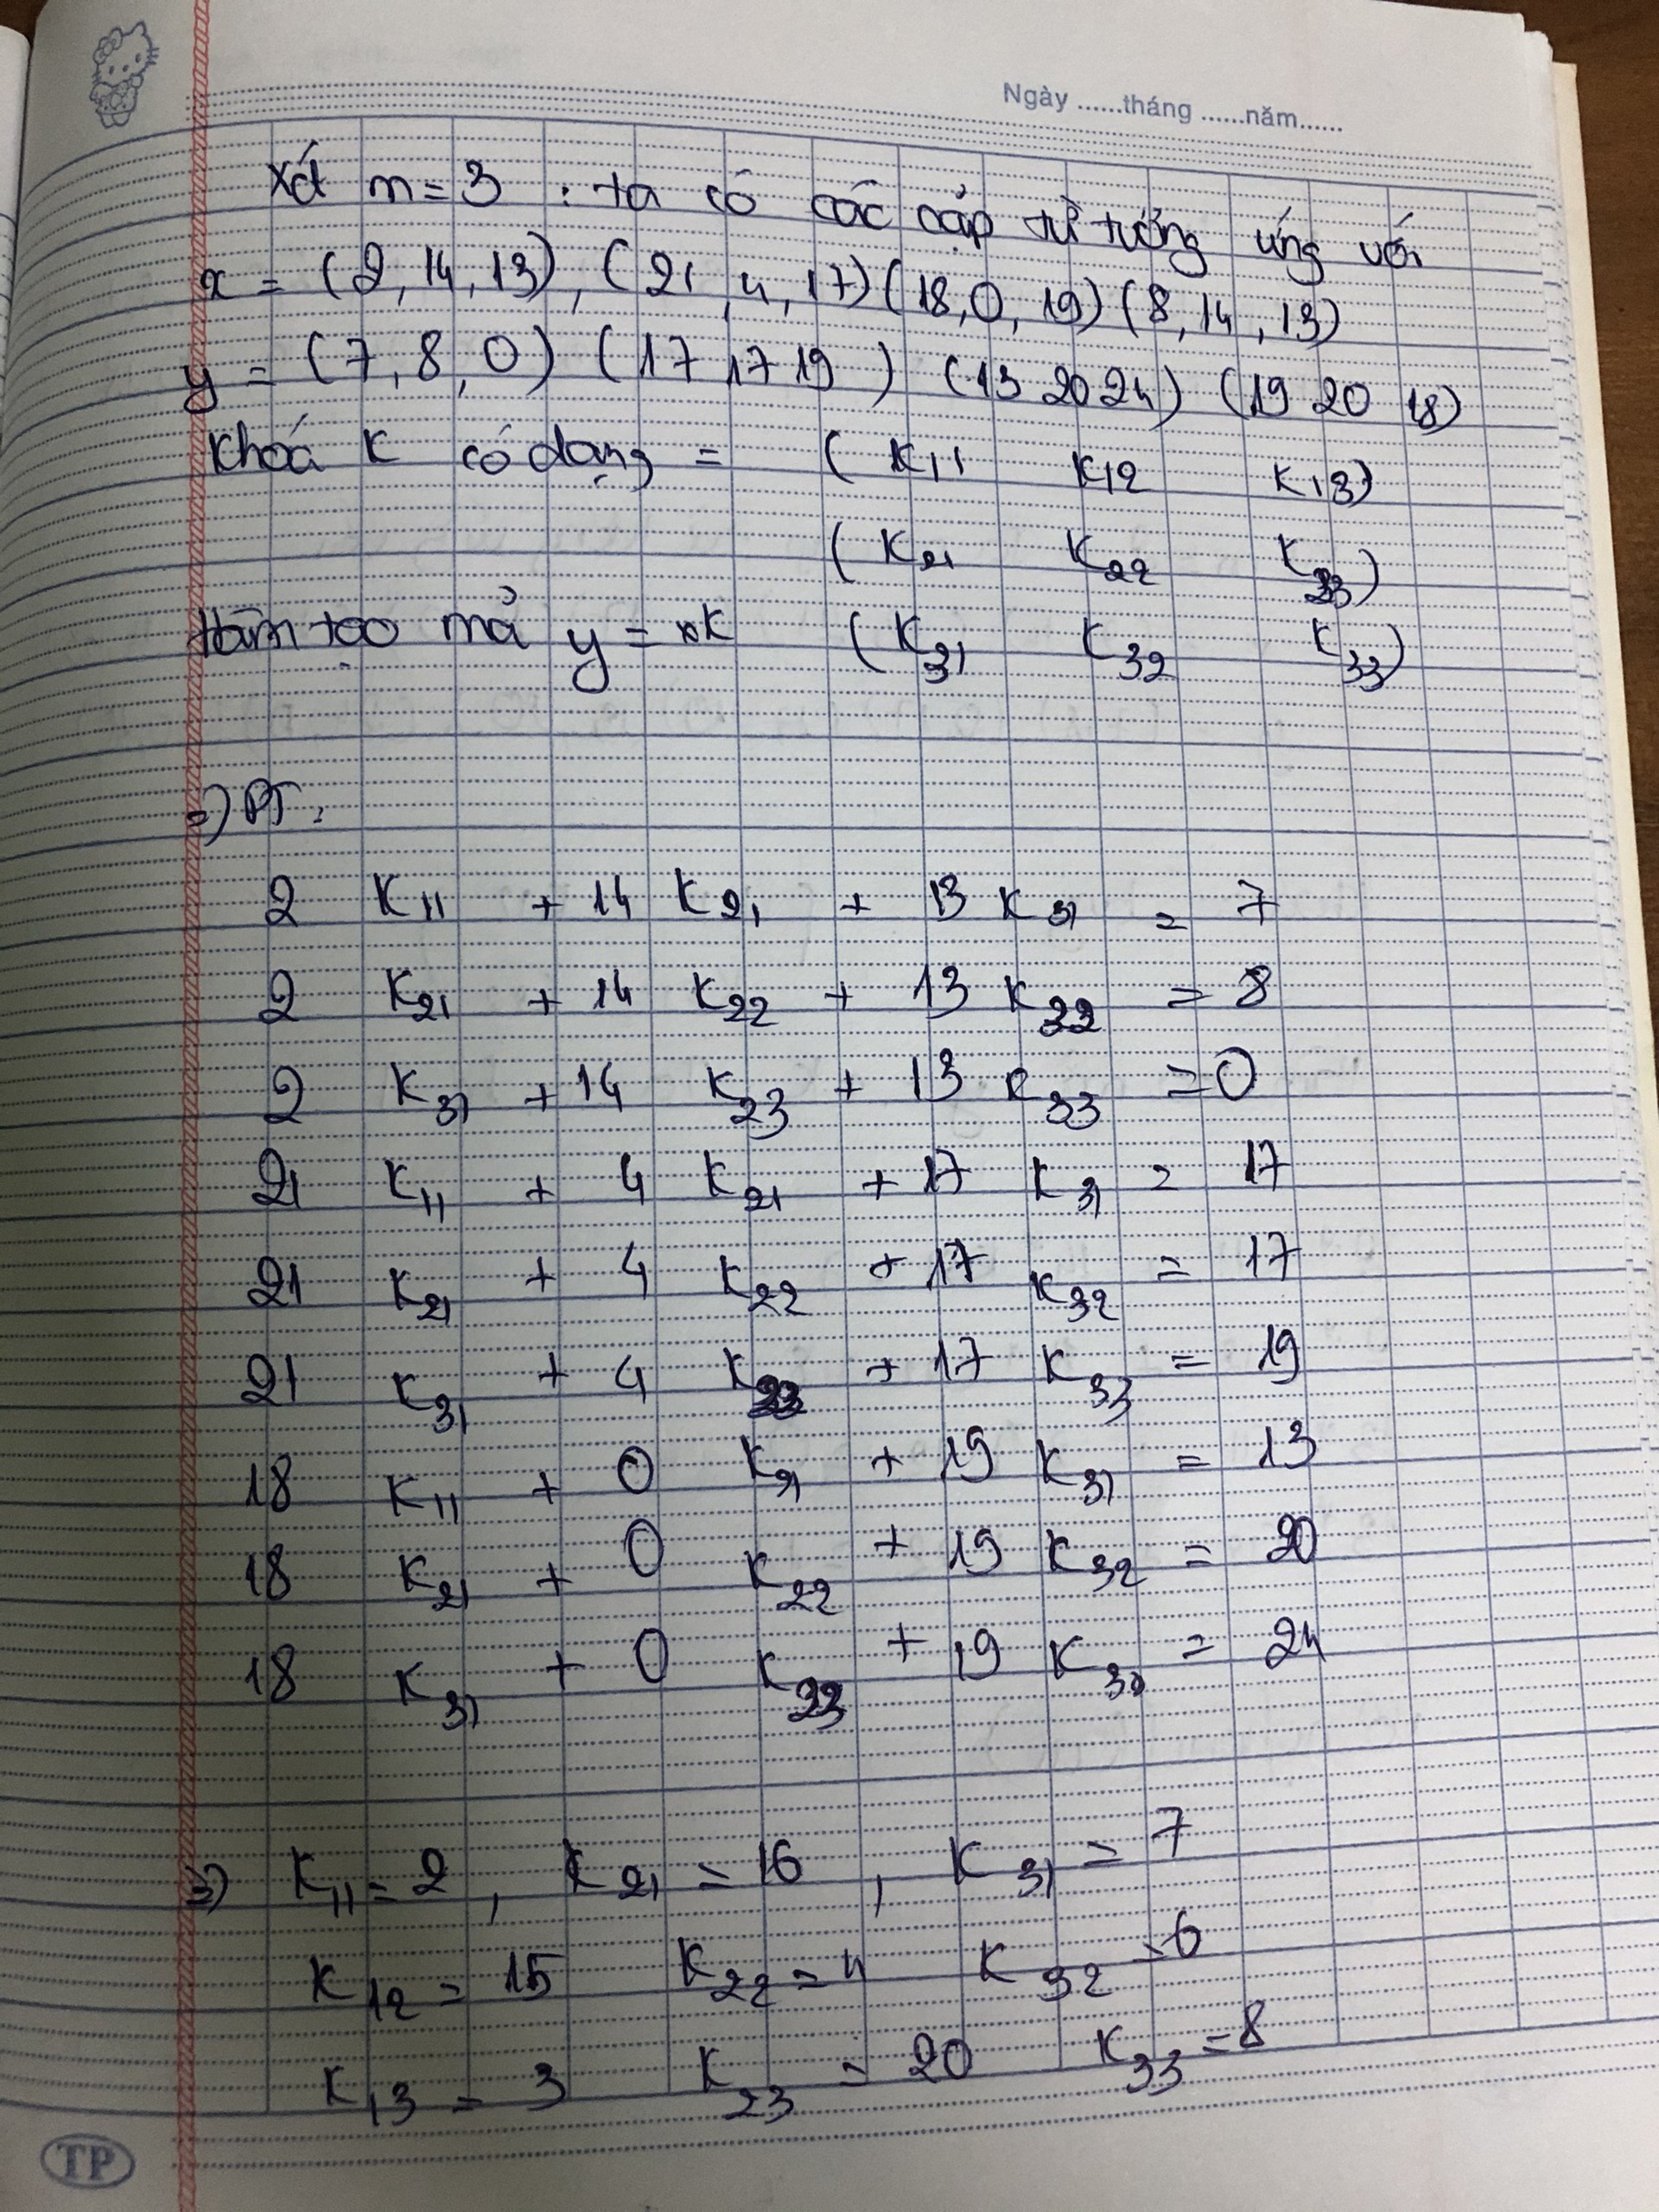 Ngày ......tháng ......năm......
Xét m = 3 : ta có các cặp từ tướng ứng với
x = (2, 14, 13), (21, 4, 17) (18, 0, 19) (8, 14, 13)
y = (7, 8, 0) (17 17 19) (13 20 24) (19 20 18)
Khoá K có dạng = ( K11 K12 K13)
( K21 K22 K23)
Hàm tạo mã y = xK ( K31 K32 K33)
=) PT :
2 K11 + 14 K21 + 13 K31 = 7
2 K21 + 14 K22 + 13 K22 = 8
2 K31 + 14 K23 + 13 K33 = 0
21 K11 + 4 K21 + 17 K31 = 17
21 K21 + 4 K22 + 17 K32 = 17
21 K31 + 4 K23 + 17 K33 = 19
18 K11 + 0 K21 + 19 K31 = 13
18 K21 + 0 K22 + 19 K32 = 20
18 K31 + 0 K23 + 19 K33 = 24
=) K11 = 2 , K21 = 16 , K31 = 7
K12 = 15 K22 = 4 K32 = 6
K13 = 3 K23 = 20 K33 = 8
TP